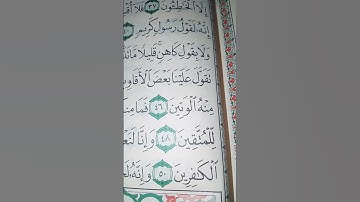 إِلَّا ٱلْخَٰطِـُٔونَ ٣٧ فَلَآ أُقْ
إِنَّهُۥ لَقَوْلُ رَسُولٍ كَرِيمٍ
وَلَا بِقَوْلِ كَاهِنٍۚ قَلِيلًا مَّا
تَقَوَّلَ عَلَيْنَا بَعْضَ ٱلْأَقَاوِي
مِنْهُ ٱلْوَتِينَ ٤٦ فَمَا مِن
لِّلْمُتَّقِينَ ٤٨ وَإِنَّا لَنَعْ
ٱلْكَٰفِرِينَ ٥٠ وَإِنَّهُۥ لَحَ